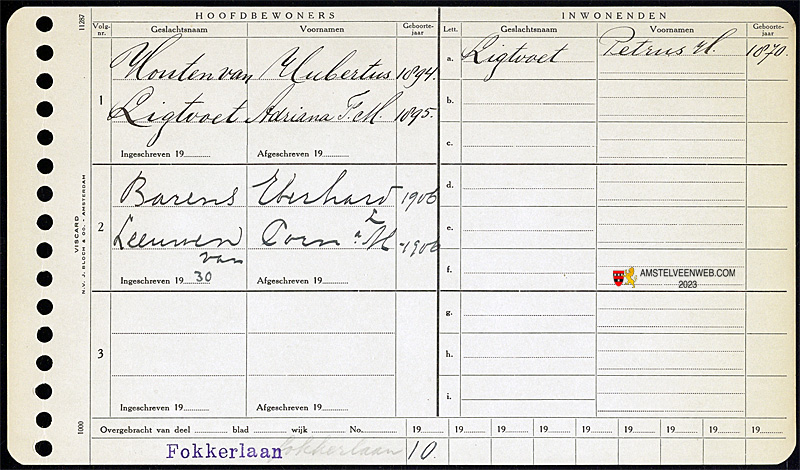 11287
HOOFDBEWONERS
INWONENDEN
Volg-nr.
Geslachtsnaam
Voornamen
Geboorte-jaar
Lett.
Geslachtsnaam
Voornamen
Geboorte-jaar
1
Houten van Hubertus 1894.
Ligtvoet Adriana F. M. 1895.
Ingeschreven 19
Afgeschreven 19
a. Ligtvoet Petrus H. 1870.
b.
c.
2
Barens Eberhard 1906
Leeuwen van
M -1906
Ingeschreven 19 30
Afgeschreven 19
d.
e.
f.
AMSTELVEENWEB.COM
2023
3
Ingeschreven 19
Afgeschreven 19
g.
h.
i.
VISCARD
N.V. J. BLOCH & CO. - AMSTERDAM
1000
Overgebracht van deel blad wijk No. 19 19 19 19 19 19 19 19 19
Fokkerlaan Fokkerlaan 10.